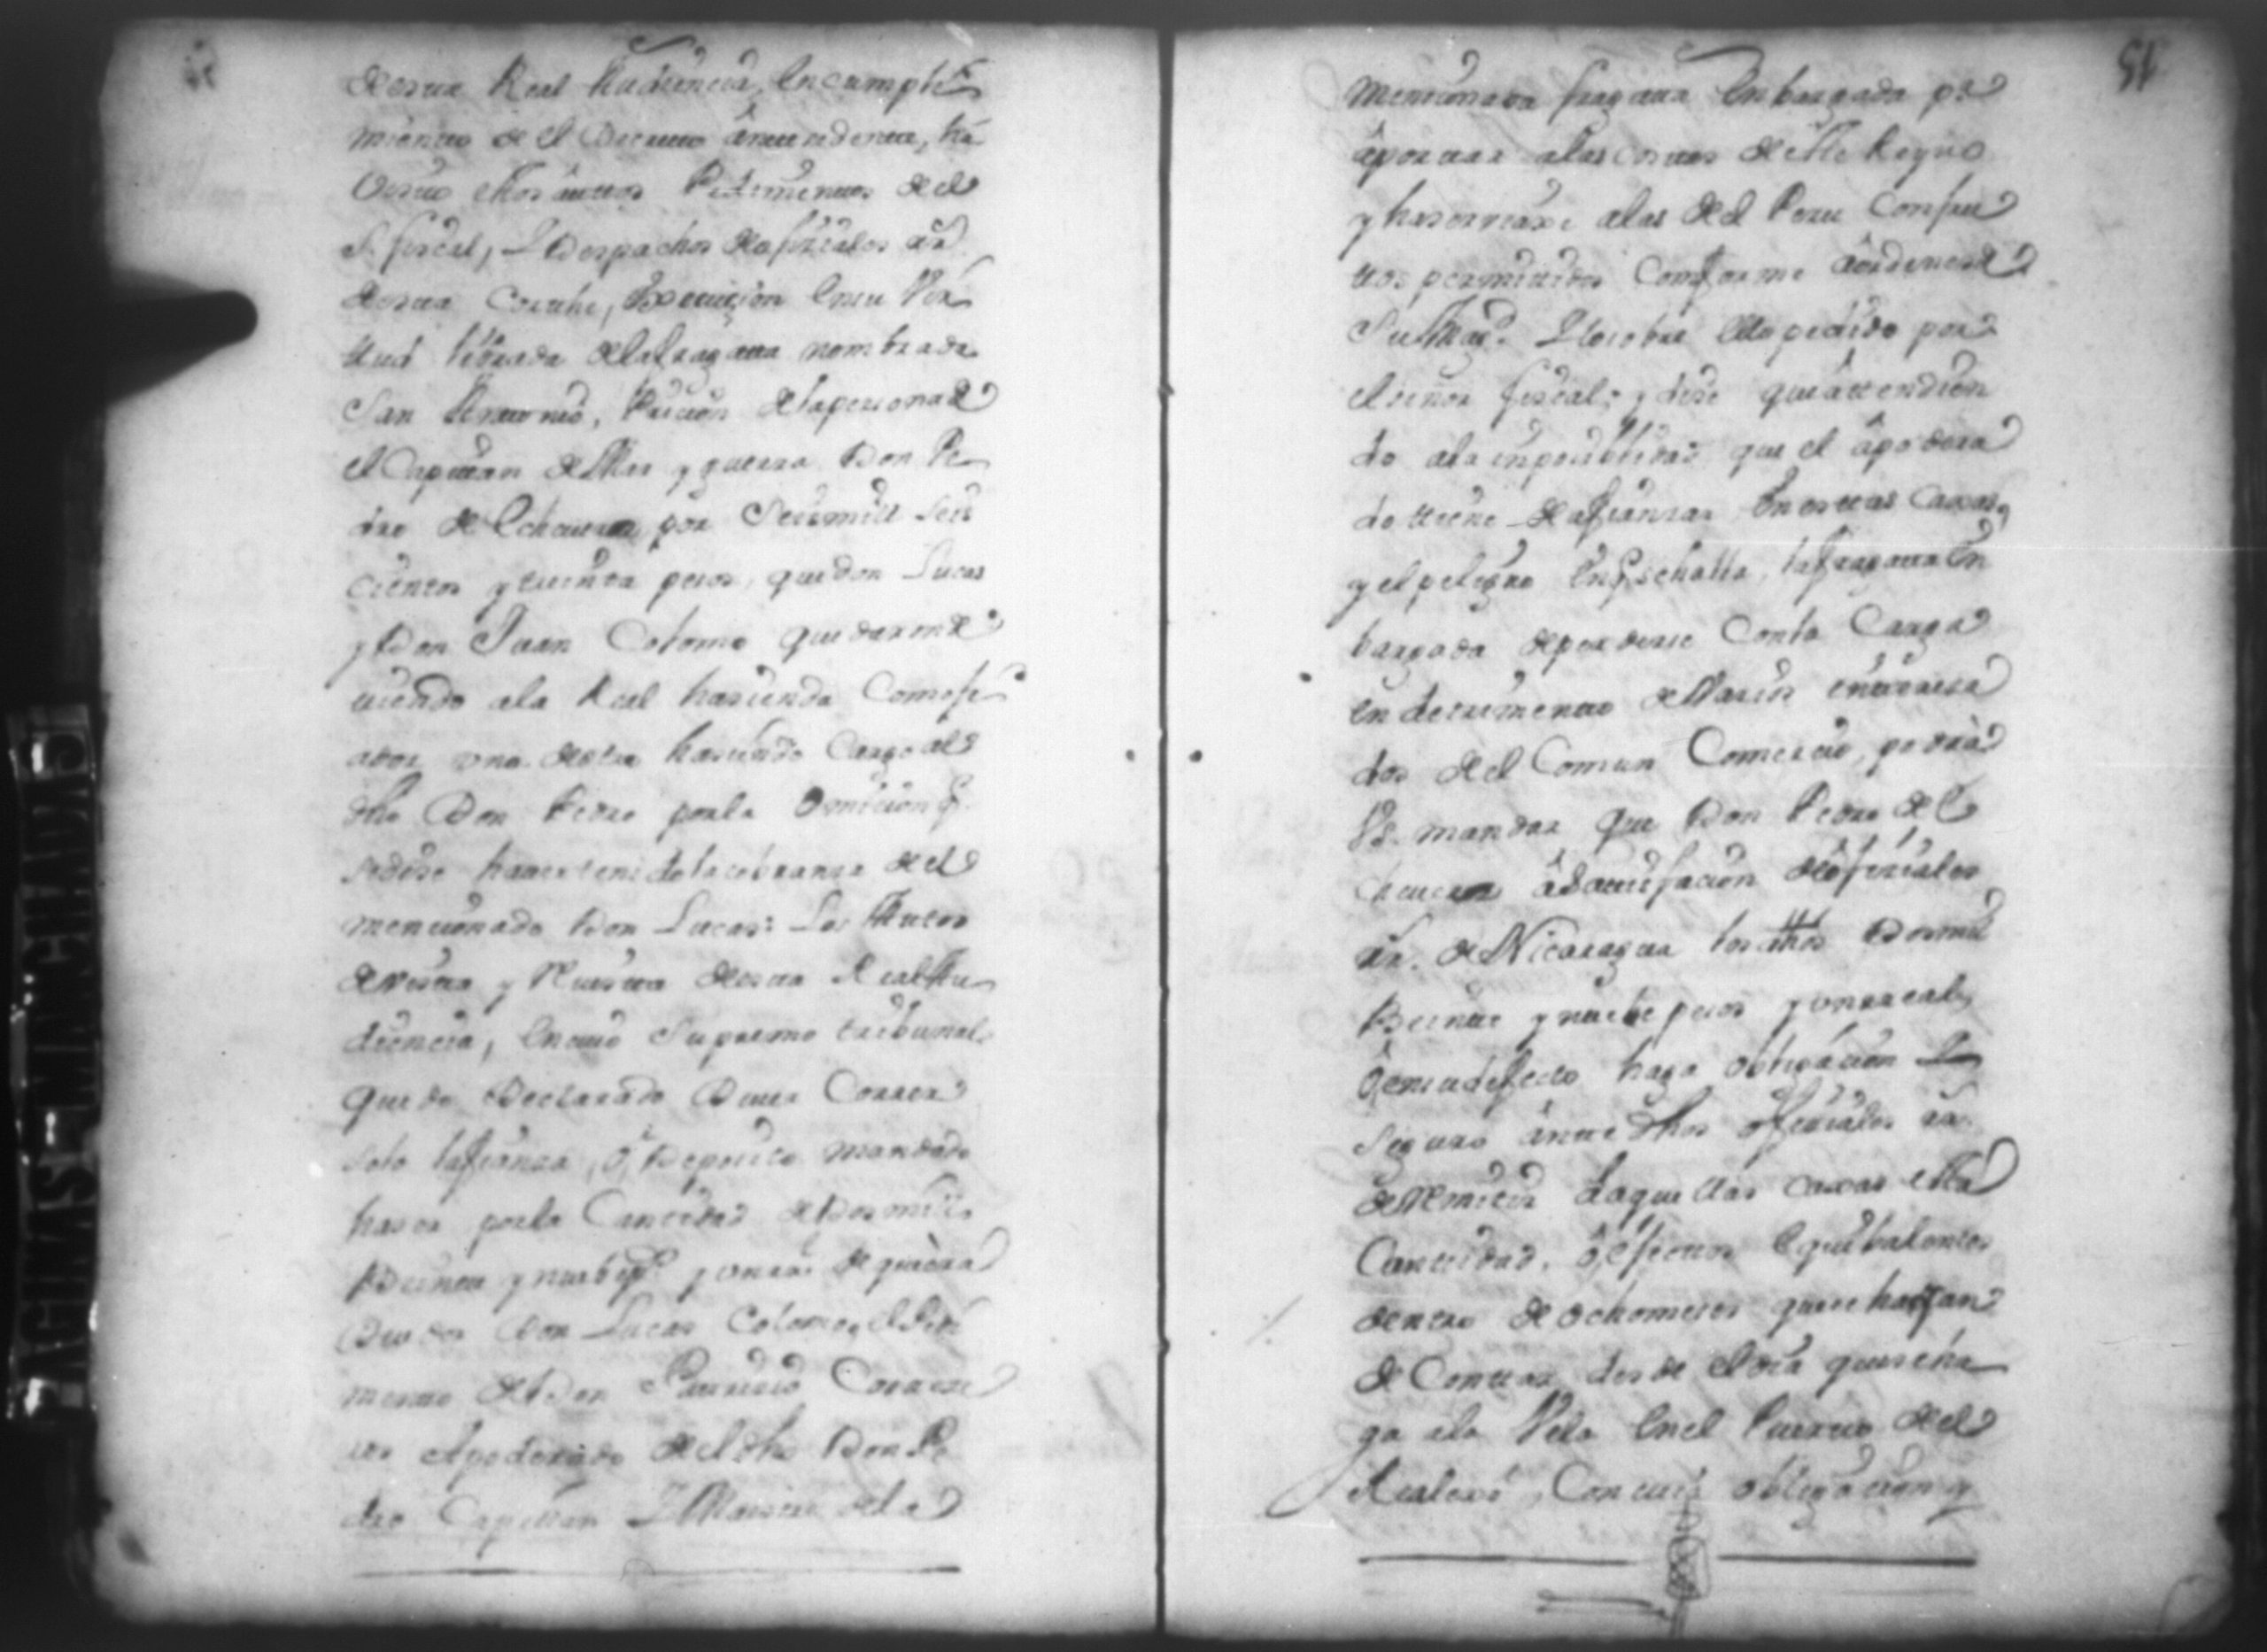 de esta Real Audiencia, En cumpli
miento de el Decreto antecedente, ha
visto estos autos Pedimentos de el
S.r fiscal, y Despachos de ofiziales R.s
de esta Corthe, Execuzion en su Vir
tud librada de la fragatta nombrada
San Antonio, Pricion de la persona de
el Capitan de Mar y guerra Don Pe
dro de Echeverz por Seis mill seis
cientos y treinta pesos, que don Lucas
y Don Juan Colomo quedaron de
viendo a la Real hacienda Como fi
ador uno de otro haciendo Cargo al
dho Don Pedro por la Omicion q.
se dise haver tenido la cobranza de el
mencionado Don Lucas: Los Autos
de vista y Revista de esta Real Au
diencia, En cuio Supremo tribunal
quedo Declarado Dever Correr
solo la fianza, o Deposito mandado
haser por la Cantidad de Dos mill
Beinte y nuebe p.s y un rr.l de que era
Deudor Don Lucas Colomo, el Pedi
mento de Don
Apoderado de el dho Don Pe
dro Capittan y Maestre de la
51
mencionada fragatta Enbargada p.a
aportar a las costas de este Reyno
y haser viaxe a las de el Peru Con fru
ttos permitidos Comforme a ordenes de
Su Mag.d Y lo sobre ello pedido por
el señor fiscal; y dise que attendien
do a la inposiblidad que el apodera
do ttiene de afianzar En esttas Caxas,
y el peligro En q. se halla, la fragatta En
bargada de perderse Con la Carga
en detrimento de Varios interesa
dos de el Comun Comercio, podrá
VS. mandar que Don Pedro de E
cheverz a Satisfacion de ofiziales
Rs. de Nicaragua los dhos Dos mil
Beinte y nuebe pesos y un real,
o en su defecto haga obligacion
Seguro ante dhos ofiziales Rs.
de Remitir a aquellas caxas esta
Cantidad, o efectos Equibalentes
dentro de ocho meses que se hayan
de Conttar desde el dia que se ha
ga a la Vela En el Puerto de el
Realexo, Con cuia obligacion y